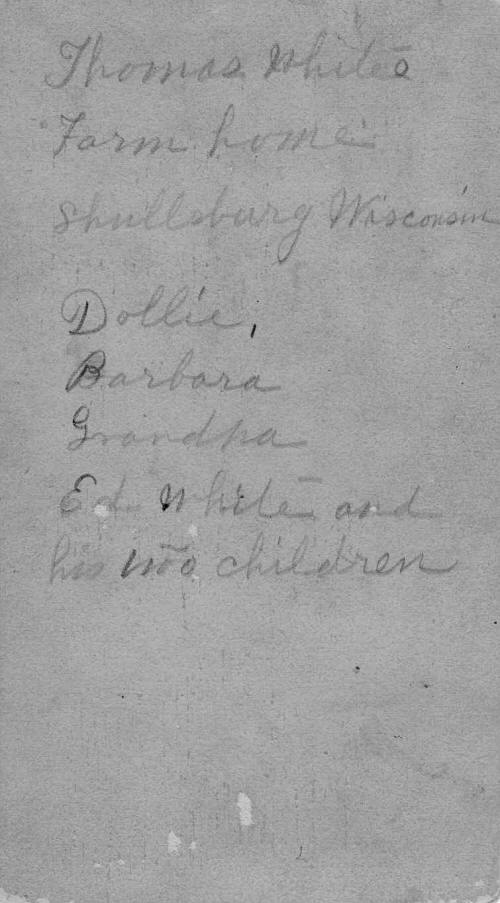 Thomas White
Farm home
Shullsburg Wisconsin
Dollie,
Barbara
Grandpa
Ed White and
his two children